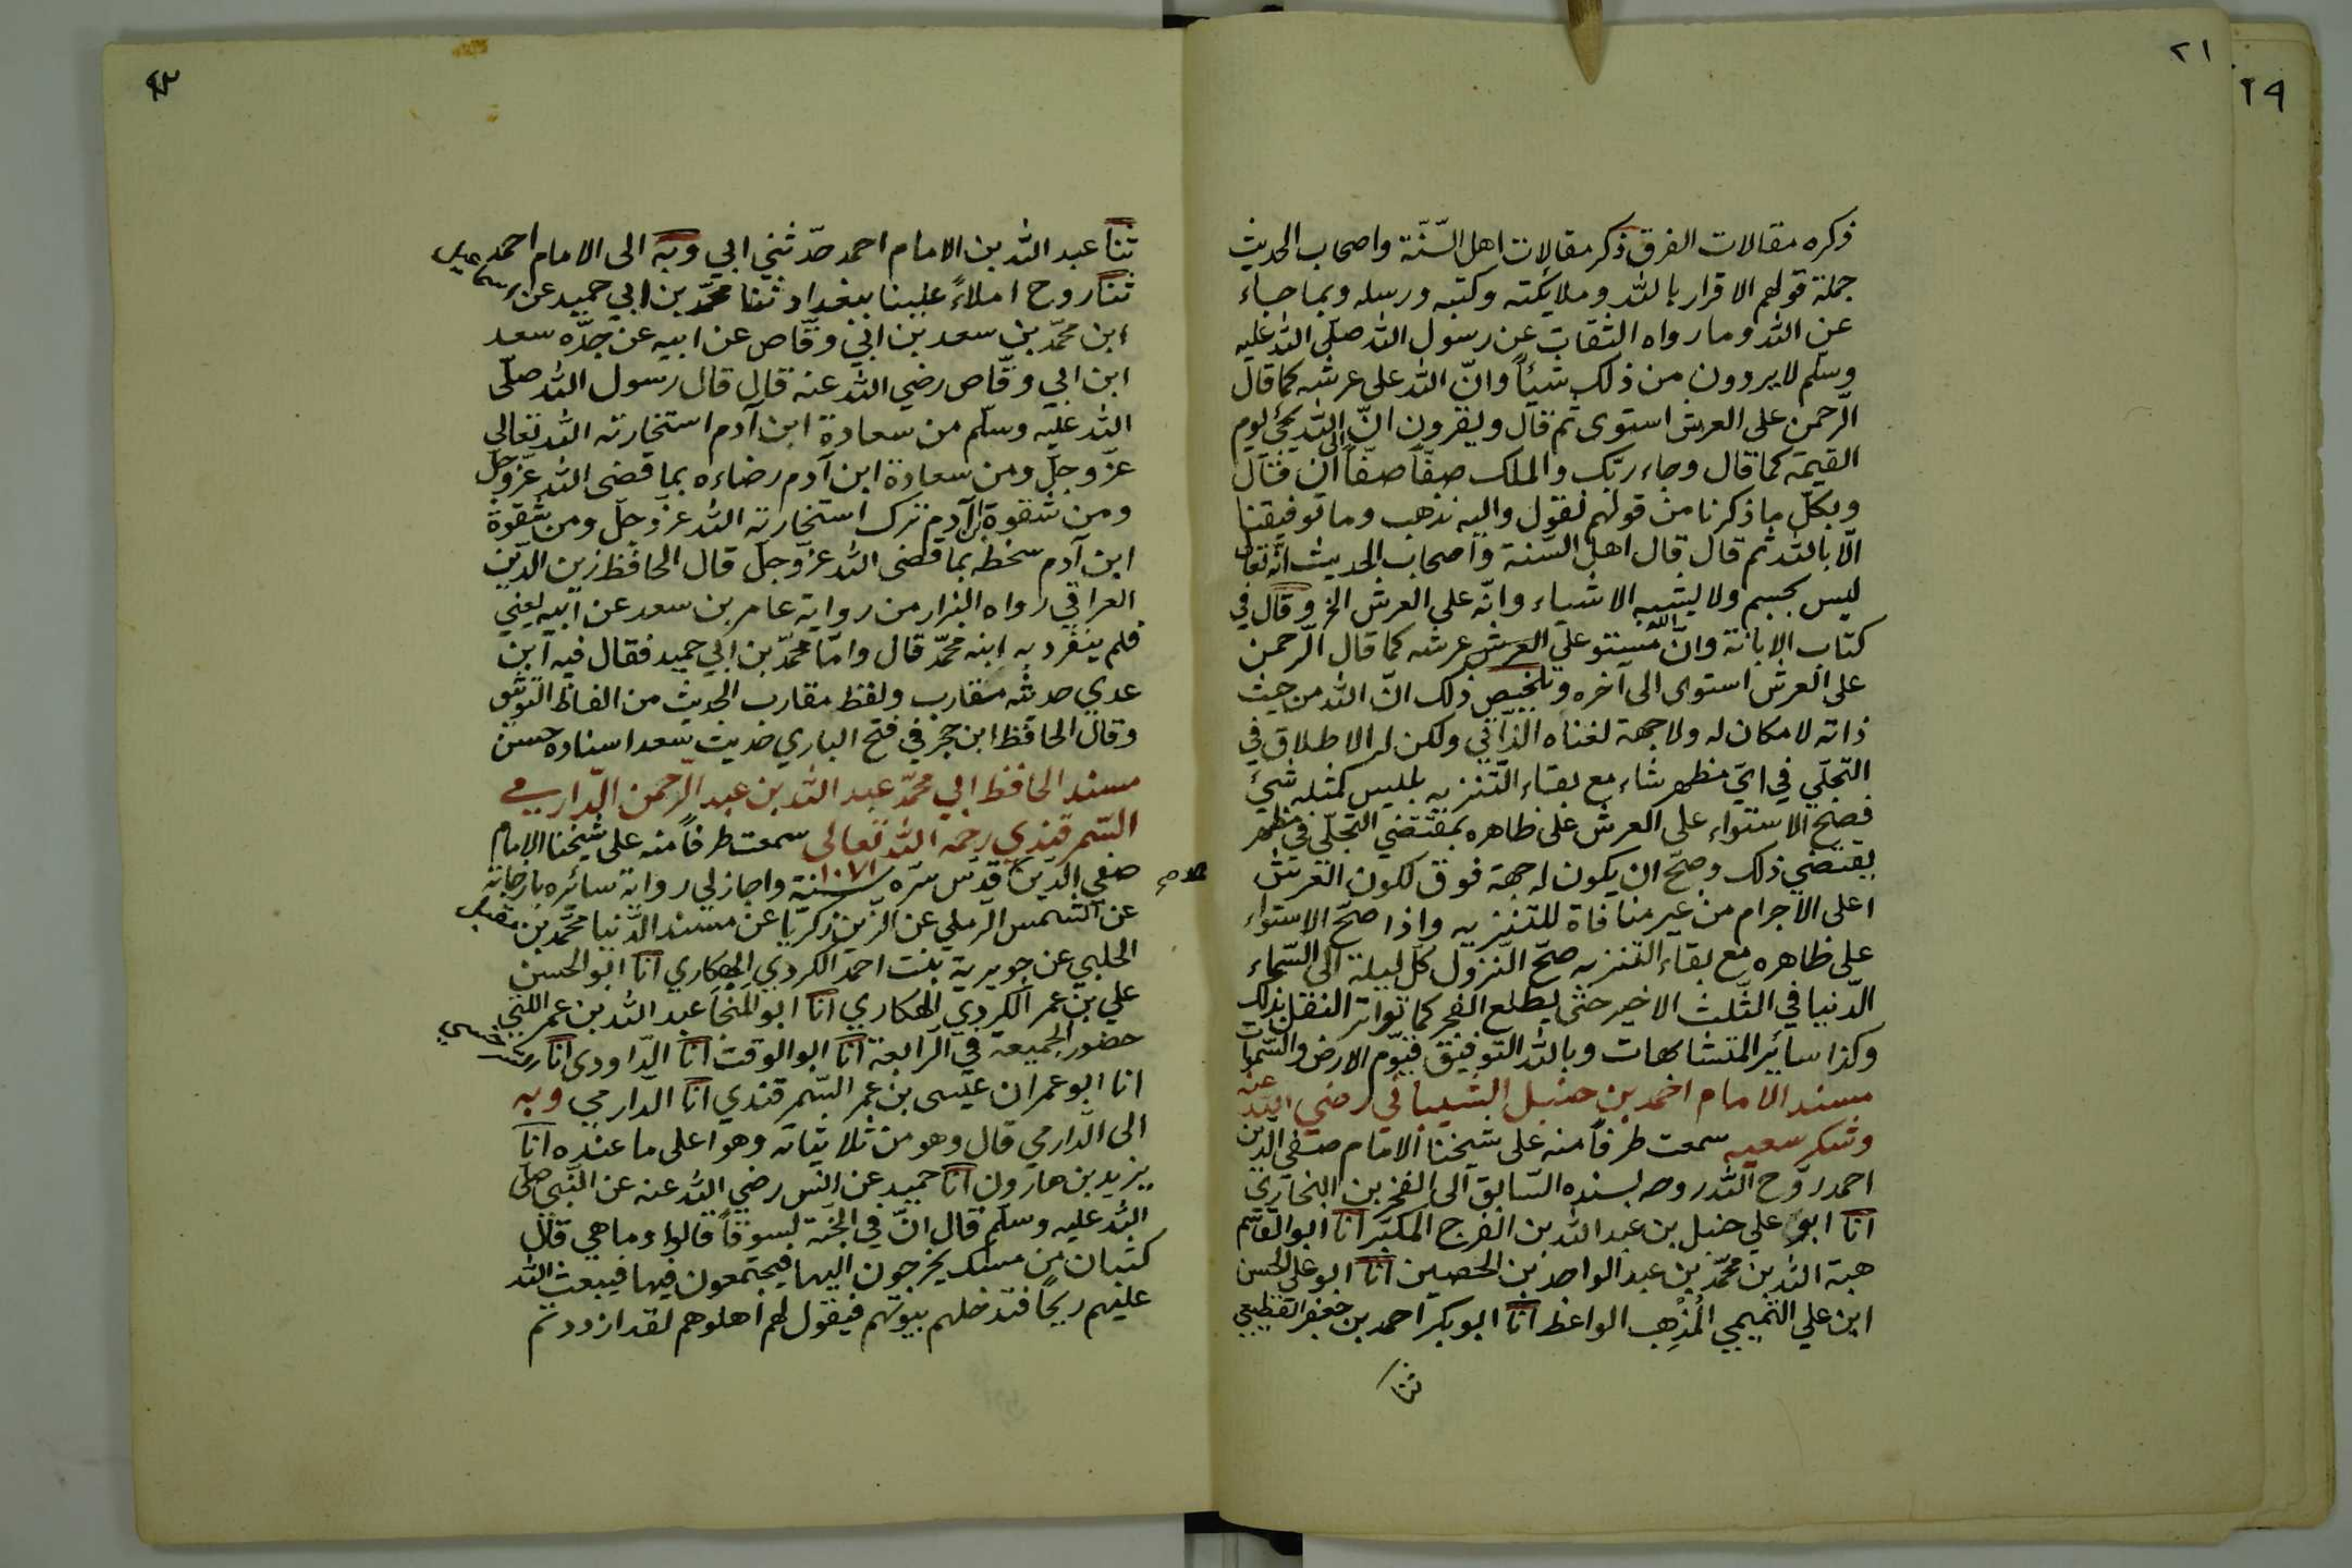 ٢١
٢٩
ذكره مقالات الفرق ذكر مقالات اهل السّنّة واصحاب الحديث
جملة قولهم الاقرار بالله وملايكته وكتبه ورسله وبما جاء
عن الله وما رواه الثقات عن رسول الله صلّى الله عليه
وسلّم لا يردون من ذلك شيئاً وانّ الله على عرشه كما قال
الرّحمن على العرش استوى ثم قال ويقرون انّ الله يجئ يوم
القيمة كما قال وجاء ربّك والملك صفّاً صفّاً الى ان قال
وبكلّ ما ذكرنا من قولهم نقول واليه نذهب وما توفيقنا
الّا بالله ثم قال قال اهل السّنة واصحاب الحديث انّه تعالى
ليس بجسم ولا يشبه الاشياء وانّه على العرش الخ وقال في
كتاب الابانة وانّ الله مستو على العرش عرشه كما قال الرّحمن
على العرش استوى الى آخره وتلخيص ذلك انّ الله من حيث
ذاته لا مكان له ولا جهة لغناه الذّاتي ولكن له الاطلاق في
التجلّي في ايّ مظهر شاء مع بقاء التّنزيه بليس كمثله شئ
فصحّ الاستواء على العرش على ظاهره بمقتضي التّجلّي في مظهر
يقتضي ذلك وصحّ ان يكون له جهة فوق لكون العرش
اعلى الاجرام من غير منافاة للتنزيه واذا صحّ الاستواء
على ظاهره مع بقاء التنزيه صحّ النّزول كلّ ليلة الى السّماء
الدّنيا في الثّلث الاخير حتى يطلع الفجر كما تواتر النقل بذلك
وكذا سائير المتشابهات وبالله التّوفيق قيّوم الارض والسّموات
مسند الامام احمد بن حنبل الشيباني رضي الله عنه
وشكر سعيه سمعت طرفاً منه على شيخنا الامام صفي الدّين
احمد روّح الله روحه بسنده السّابق الى الفخر بن البخاري
انا ابو علي حنبل بن عبد الله بن الفرج المكبّر انا ابو القاسم
هبة الله بن محمّد بن عبد الواحد بن الحصين انا ابو علي الحسن
ابن علي التّميمي المُذْهِب الواعظ انا ابو بكر احمد بن جعفر القطيعي
ثنا
ثنا عبد الله بن الامام احمد حدّثني ابي وبه الى الامام احمد
ثنا روح املاءً علينا ببغداد ثنا محمّد بن ابي حميد عن اسماعيل
ابن محمّد بن سعد بن ابي وقّاص عن ابيه عن جدّه سعد
ابن ابي وقّاص رضي الله عنه قال قال رسول الله صلّى
الله عليه وسلّم من سعادة ابن آدم استخارته الله تعالى
عزّ وجلّ ومن سعادة ابن آدم رضاءه بما قضى الله عزّ وجلّ
ومن شقوة ابن آدم ترك استخارته الله عزّ وجلّ ومن شقوة
ابن آدم سخطه بما قضى الله عزّ وجلّ قال الحافظ زين الدّين
العراقي رواه البزار من رواية عامر بن سعد عن ابيه يعني
فلم ينفرد به ابنه محمّد قال وامّا محمّد بن ابي حميد فقال فيه ابن
عدي حديثه مقارب ولفظ مقارب الحديث من الفاظ التوثيق
وقال الحافظ ابن حجر في فتح الباري حديث سعد اسناده حسن
مسند الحافظ ابي محمّد عبد الله بن عبد الرّحمن الدّارمي
السّمرقندي رحمه الله تعالى سمعت طرفاً منه على شيخنا الامام
صفي الدّين قدّس سرّه سنة ١٠٧١ واجاز لي رواية سائره باجازته
عن الشمس الرّملي عن الزّين زكريّا عن مسند الدّنيا محمّد بن مقبل
الحلبي عن جويرية بنت احمد الكردي الهكاري انا ابو الحسن
علي بن عمر الكردي الهكاري انا ابو المنجا عبد الله بن عمر اللتي
حضور الجميعه في الرابعة انا ابو الوقت انا الدّاودى انا السرخسي
انا ابو عمران عيسى بن عمر السّمرقندي انا الدّارمي وبه
الى الدّارمي قال وهو من ثلاثياته وهو اعلى ما عنده انا
يزيد بن هارون انا حميد عن انس رضي الله عنه عن النّبي صلّى
الله عليه وسلّم قال انّ في الجنّة لسوقاً قالوا وما هي قال
كثبان من مسك يخرجون اليها فيجتمعون فيها فيبعث الله
عليهم ريحاً فتدخلهم بيوتهم فيقول لهم اهلوهم لقد ازددتم